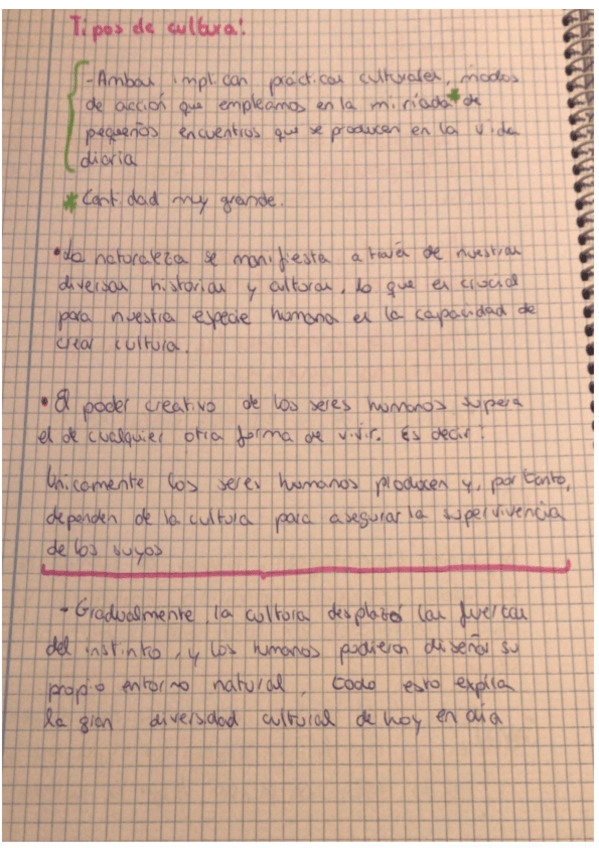 Tipos de cultura:
- Ambas implican prácticas culturales, modos
de acción que empleamos en la miríada* de
pequeños encuentros que se producen en la vida
diaria
* Cantidad muy grande.
• La naturaleza se manifiesta a través de nuestras
diversas historias y culturas, lo que es crucial
para nuestra especie humana es la capacidad de
crear cultura.
• El poder creativo de los seres humanos supera
el de cualquier otra forma de vivir. Es decir:
Únicamente los seres humanos producen y, por tanto,
dependen de la cultura para asegurar la supervivencia
de los suyos
- Gradualmente, la cultura desplazó las fuerzas
del instinto, y los humanos pudieron diseñar su
propio entorno natural, todo esto explica
la gran diversidad cultural de hoy en día